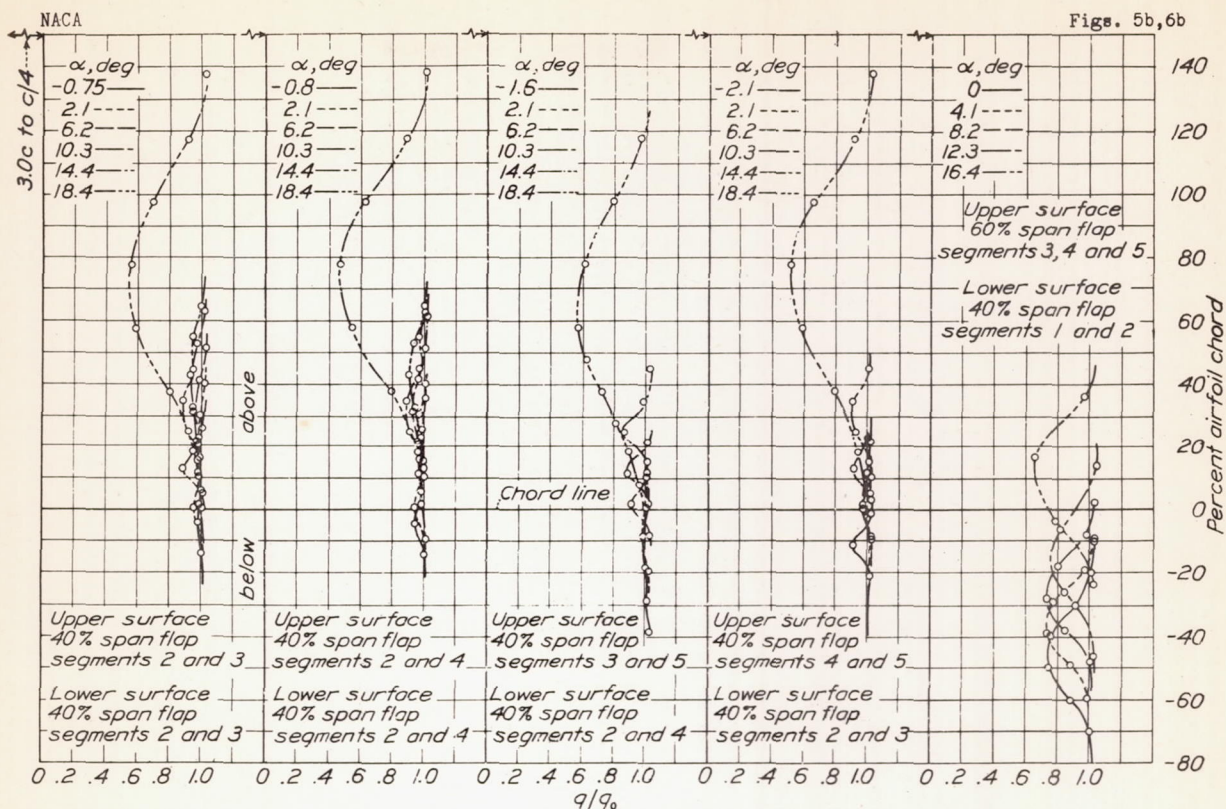 NACA
Figs. 5b,6b
3.0c to c/4
α, deg
-0.75
2.1
6.2
10.3
14.4
18.4
α, deg
-0.8
2.1
6.2
10.3
14.4
18.4
α, deg
-1.6
2.1
6.2
10.3
14.4
18.4
α, deg
-2.1
2.1
6.2
10.3
14.4
18.4
α, deg
0
4.1
8.2
12.3
16.4
Upper surface
60% span flap
segments 3,4 and 5
Lower surface
40% span flap
segments 1 and 2
above
below
Chord line
Upper surface
40% span flap
segments 2 and 3
Lower surface
40% span flap
segments 2 and 3
Upper surface
40% span flap
segments 2 and 4
Lower surface
40% span flap
segments 2 and 4
Upper surface
40% span flap
segments 3 and 5
Lower surface
40% span flap
segments 2 and 4
Upper surface
40% span flap
segments 4 and 5
Lower surface
40% span flap
segments 2 and 3
140
120
100
80
60
40
20
0
-20
-40
-60
-80
Percent airfoil chord
0 .2 .4 .6 .8 1.0
0 .2 .4 .6 .8 1.0
0 .2 .4 .6 .8 1.0
0 .2 .4 .6 .8 1.0
0 .2 .4 .6 .8 1.0
q/q₀